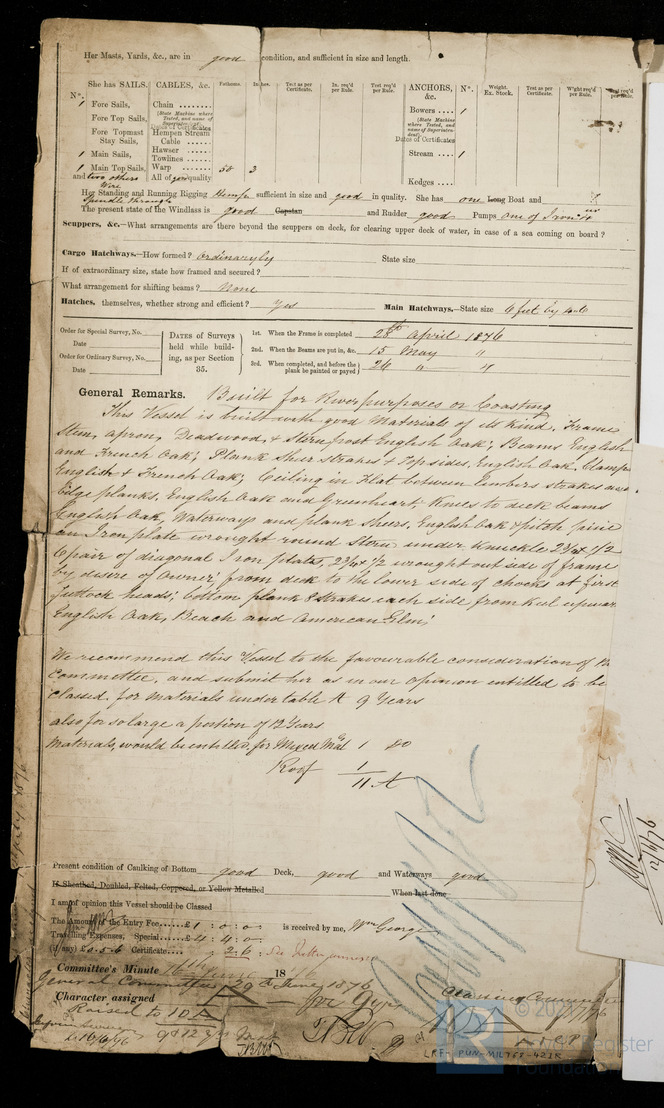 Her Masts, Yards, &c., are in good condition, and sufficient in size and length.
She has SAILS. CABLES, &c. Fathoms. Inches. Test as per Certificate. In. req'd per Rule. Test req'd per Rule. ANCHORS, &c. N°. Weight. Ex. Stock. Test as per Certificate. W'ght req'd per Rule. Test req'd per Rule.
N°.
1 Fore Sails, Chain Bowers 1
Fore Top Sails, (State Machine where Tested, and name of Superintendent) Dates of Certificates
Fore Topmast Stay Sails, Hempen Stream Cable
1 Main Sails, Hawser Stream 1
Towlines
1 Main Top Sails, Warp 50 3
and two others All of good quality Kedges
Her Standing and Running Rigging Wire Hemp sufficient in size and good in quality. She has one Long Boat and
The present state of the Windlass is Spindle through good Capstan and Rudder good Pumps one of Iron
Scuppers, &c.—What arrangements are there beyond the scuppers on deck, for clearing upper deck of water, in case of a sea coming on board?
Cargo Hatchways.—How formed? Ordinaryly State size
If of extraordinary size, state how framed and secured?
What arrangement for shifting beams? None
Hatches, themselves, whether strong and efficient? Yes Main Hatchways.—State size 6 feet by
Order for Special Survey, No.
Date
Order for Ordinary Survey, No.
Date
DATES of Surveys held while building, as per Section 35.
1st. When the Frame is completed 28th April 1876
2nd. When the Beams are put in, &c. 15 May "
3rd. When completed, and before the plank be painted or payed 26 " "
General Remarks. Built for River purposes or Coasting
This Vessel is built with good Materials of its kind, Frame
Stem, apron, Deadwood, & Stern post English Oak; Beams English
and French Oak; Plank Sheer strakes & Topsides, English Oak, Clamps
English & French Oak; Ceiling in Flat between limbers strakes and
bilge planks, English Oak and Greenheart, Knees to deck beams
English Oak, Waterways and plank sheers, English Oak & pitch pine
an Iron plate wrought round Stern under Knuckle 2¾ x ½
6 pair of diagonal Iron plates, 2¾ x ½ wrought out side of frame
by desire of Owner; from deck to the lower side of chocks at first
futtock heads; bottom plank 8 strakes each side from keel upwar
English Oak, Beach and American Elm;
We recommend this Vessel to the favourable consideration of the
Committee, and submit her as in our Opinion entitled to be
classed. for materials under table A 9 Years
also for so large a portion of 12 Years
Materials, would be entitled, for Mixed Mat 1 do
Roof 1
11 A
Present condition of Caulking of Bottom good Deck, good and Waterways good
If Sheathed, Doubled, Felted, Coppered, or Yellow Metalled When last done
I am of opinion this Vessel should be Classed
The Amount of the Entry Fee £1 : 0 : 0 is received by me, Wm George
Travelling Expenses, Special £4 : 4 : 0
(if any) £0.5.6 Certificate : 2 : 6
Committee's Minute 16th June 1876
General Committee 29th June 1876
Character assigned A
Raised to 10 A
9 & 12 yrs Mat
16/6/76
LRF-PUN-MIL758-421R
Lloyd's Register
Foundation